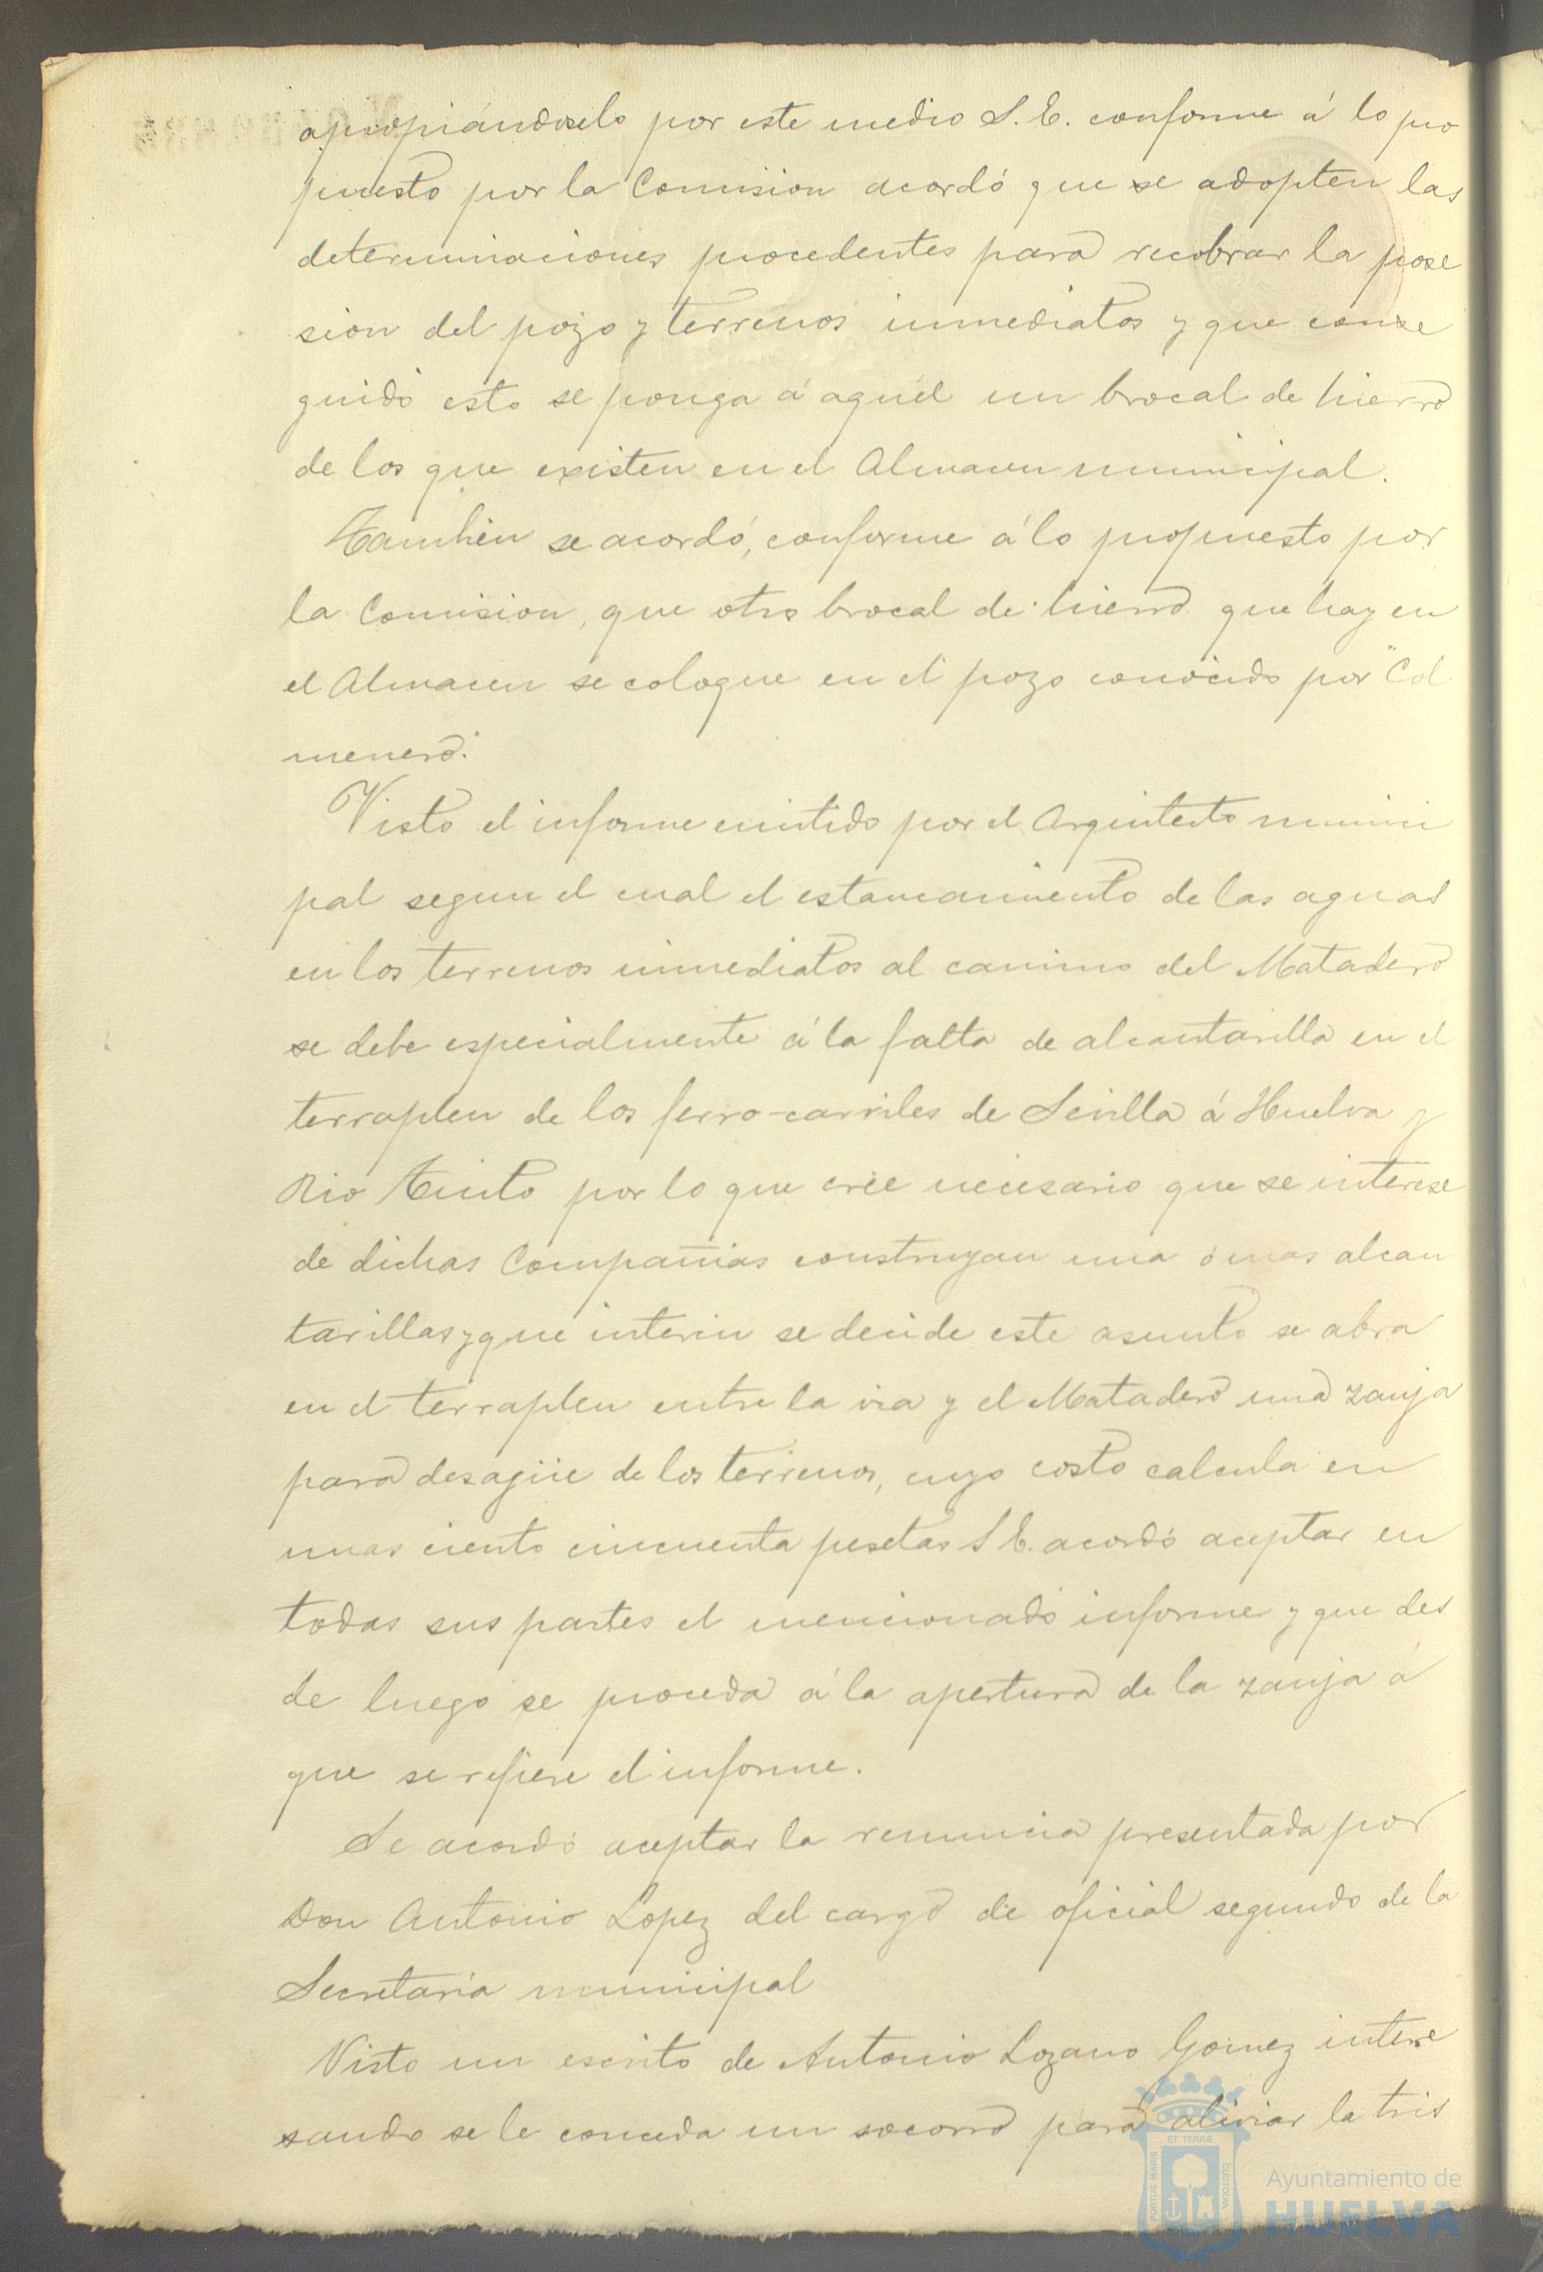 apropiándoselo por este medio S. E. conforme á lo pro
puesto por la Comision acordó que se adopten las
determinaciones procedentes para recobrar la pose
sion del pozo y terrenos inmediatos y que conse
guido esto se ponga á aquél un brocal de hierro
de los que existen en el Almacen municipal.
Tambien se acordó, conforme á lo propuesto por
la Comision, que otro brocal de hierro que hay en
el Almacen se coloque en el pozo conocido por "Col
menero."
Visto el informe emitido por el Arquitecto munici
pal segun el cual el estancamiento de las aguas
en los terrenos inmediatos al camino del Matadero
se debe especialmente á la falta de alcantarilla en el
terraplen de los ferro-carriles de Sevilla á Huelva y
Rio Tinto por lo que cree necesario que se interese
de dichas Compañias construyan una ó mas alcan
tarillas y que interin se decide este asunto se abra
en el terraplen entre la via y el Matadero una zanja
para desagüe de los terrenos, cuyo costo calcula en
unas ciento cincuenta pesetas S E. acordó aceptar en
todas sus partes el mencionado informe y que des
de luego se proceda á la apertura de la zanja á
que se refiere el informe.
Se acordó aceptar la renuncia presentada por
Don Antonio Lopez del cargo de oficial segundo de la
Secretaría municipal
Visto un escrito de Antonio Lozano Gomez intere
sando se le conceda un socorro para aliviar la tris
PORTUS MARIS ET TERRÆ CUSTODIA
Ayuntamiento de
HUELVA